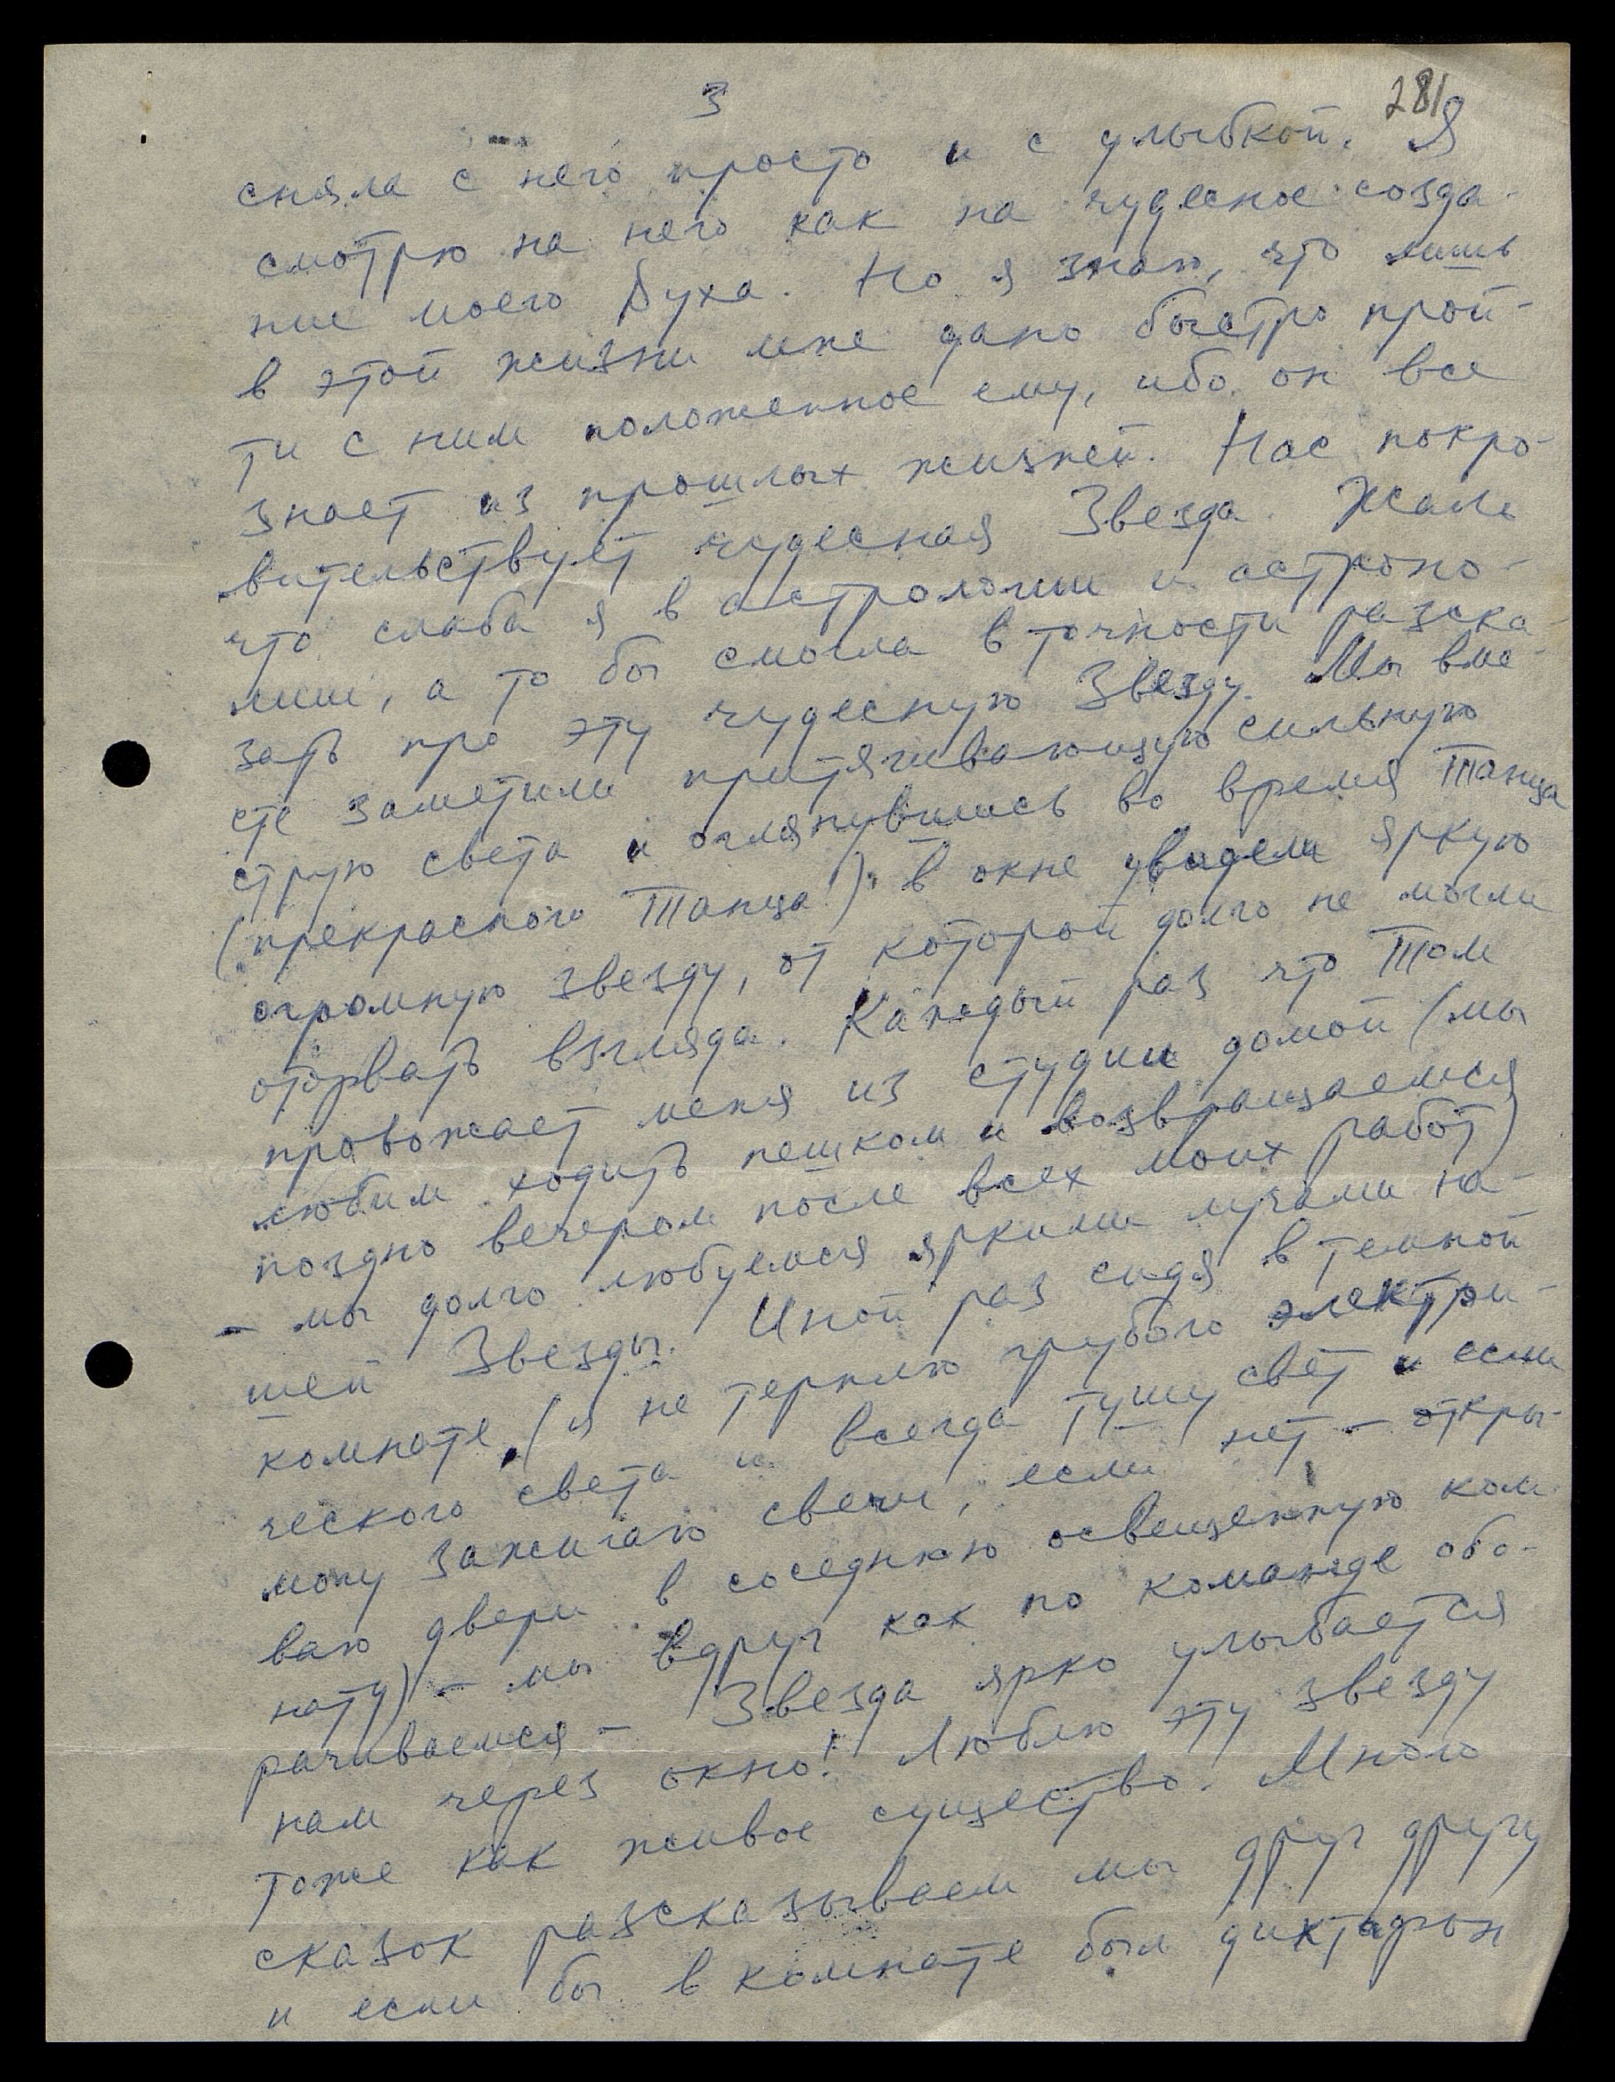 3
281
сняла с него просто и с улыбкой. Я
смотрю на него как на чудесное созда-
ние моего Духа. Но я знаю, что лишь
в этой жизни мне дано быстро прой-
ти с ним положенное ему, ибо он все
знает из прошлых жизней. Нас покро-
вительствует чудесная Звезда. Жаль
что слаба я в астрологии и астроно-
мии, а то бы смогла в точности разска-
зать про эту чудесную Звезду. Мы вме-
сте заметили притягивающую сильную
струю света и оглянувшись во время Танца
(прекрасного Танца!) в окне увидели яркую
огромную звезду, от которой долго не могли
оторвать взгляда. Каждый раз что Том
провожает меня из студии домой (мы
любим ходить пешком и возвращаемся
поздно вечером после всех моих работ)
– мы долго любуемся яркими лучами на-
шей Звезды. Иной раз сидя в темной
комнате (я не терплю грубого электри-
ческого света и всегда тушу свет и если
могу зажигаю свечи, если нет – откры-
ваю двери в соседнюю освещенную ком-
нату) – мы вдруг как по команде обо-
рачиваемся – Звезда ярко улыбается
нам через окно! Люблю эту звезду
тоже как живое существо. Много
сказок разсказываем мы друг другу
и если бы в комнате был диктафон